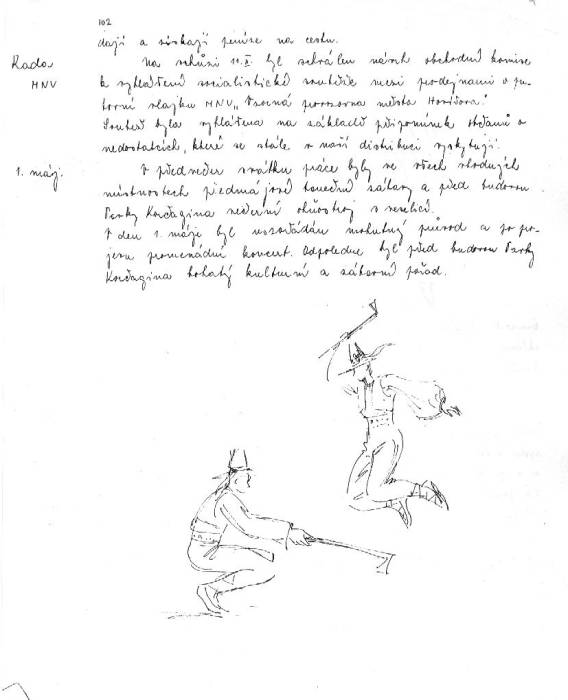 102
dají a získají peníze na cestu.
Rada
MNV
Na schůzi 11.V. byl schválen návrh obchodní komise
k vyhlášení socialistické soutěže mezi prodejnami o pu-
tovní vlajku MNV „Vzorná provozovna města Havířova."
Soutěž byla vyhlášena na základě připomínek občanů o
nedostatcích, které se stále v naší distribuci vyskytují.
1. máj.
V předvečer svátku práce byly ve všech vhodných
místnostech předmájové taneční zábavy a před budovou
Pavky Korčagina večerní ohňostroj s veselicí.
V den 1. máje byl uspořádán mohutný průvod a po
promenádní koncert. Odpoledne byl před budovou Pavky
Korčagina bohatý kulturní a zábavní pořad.